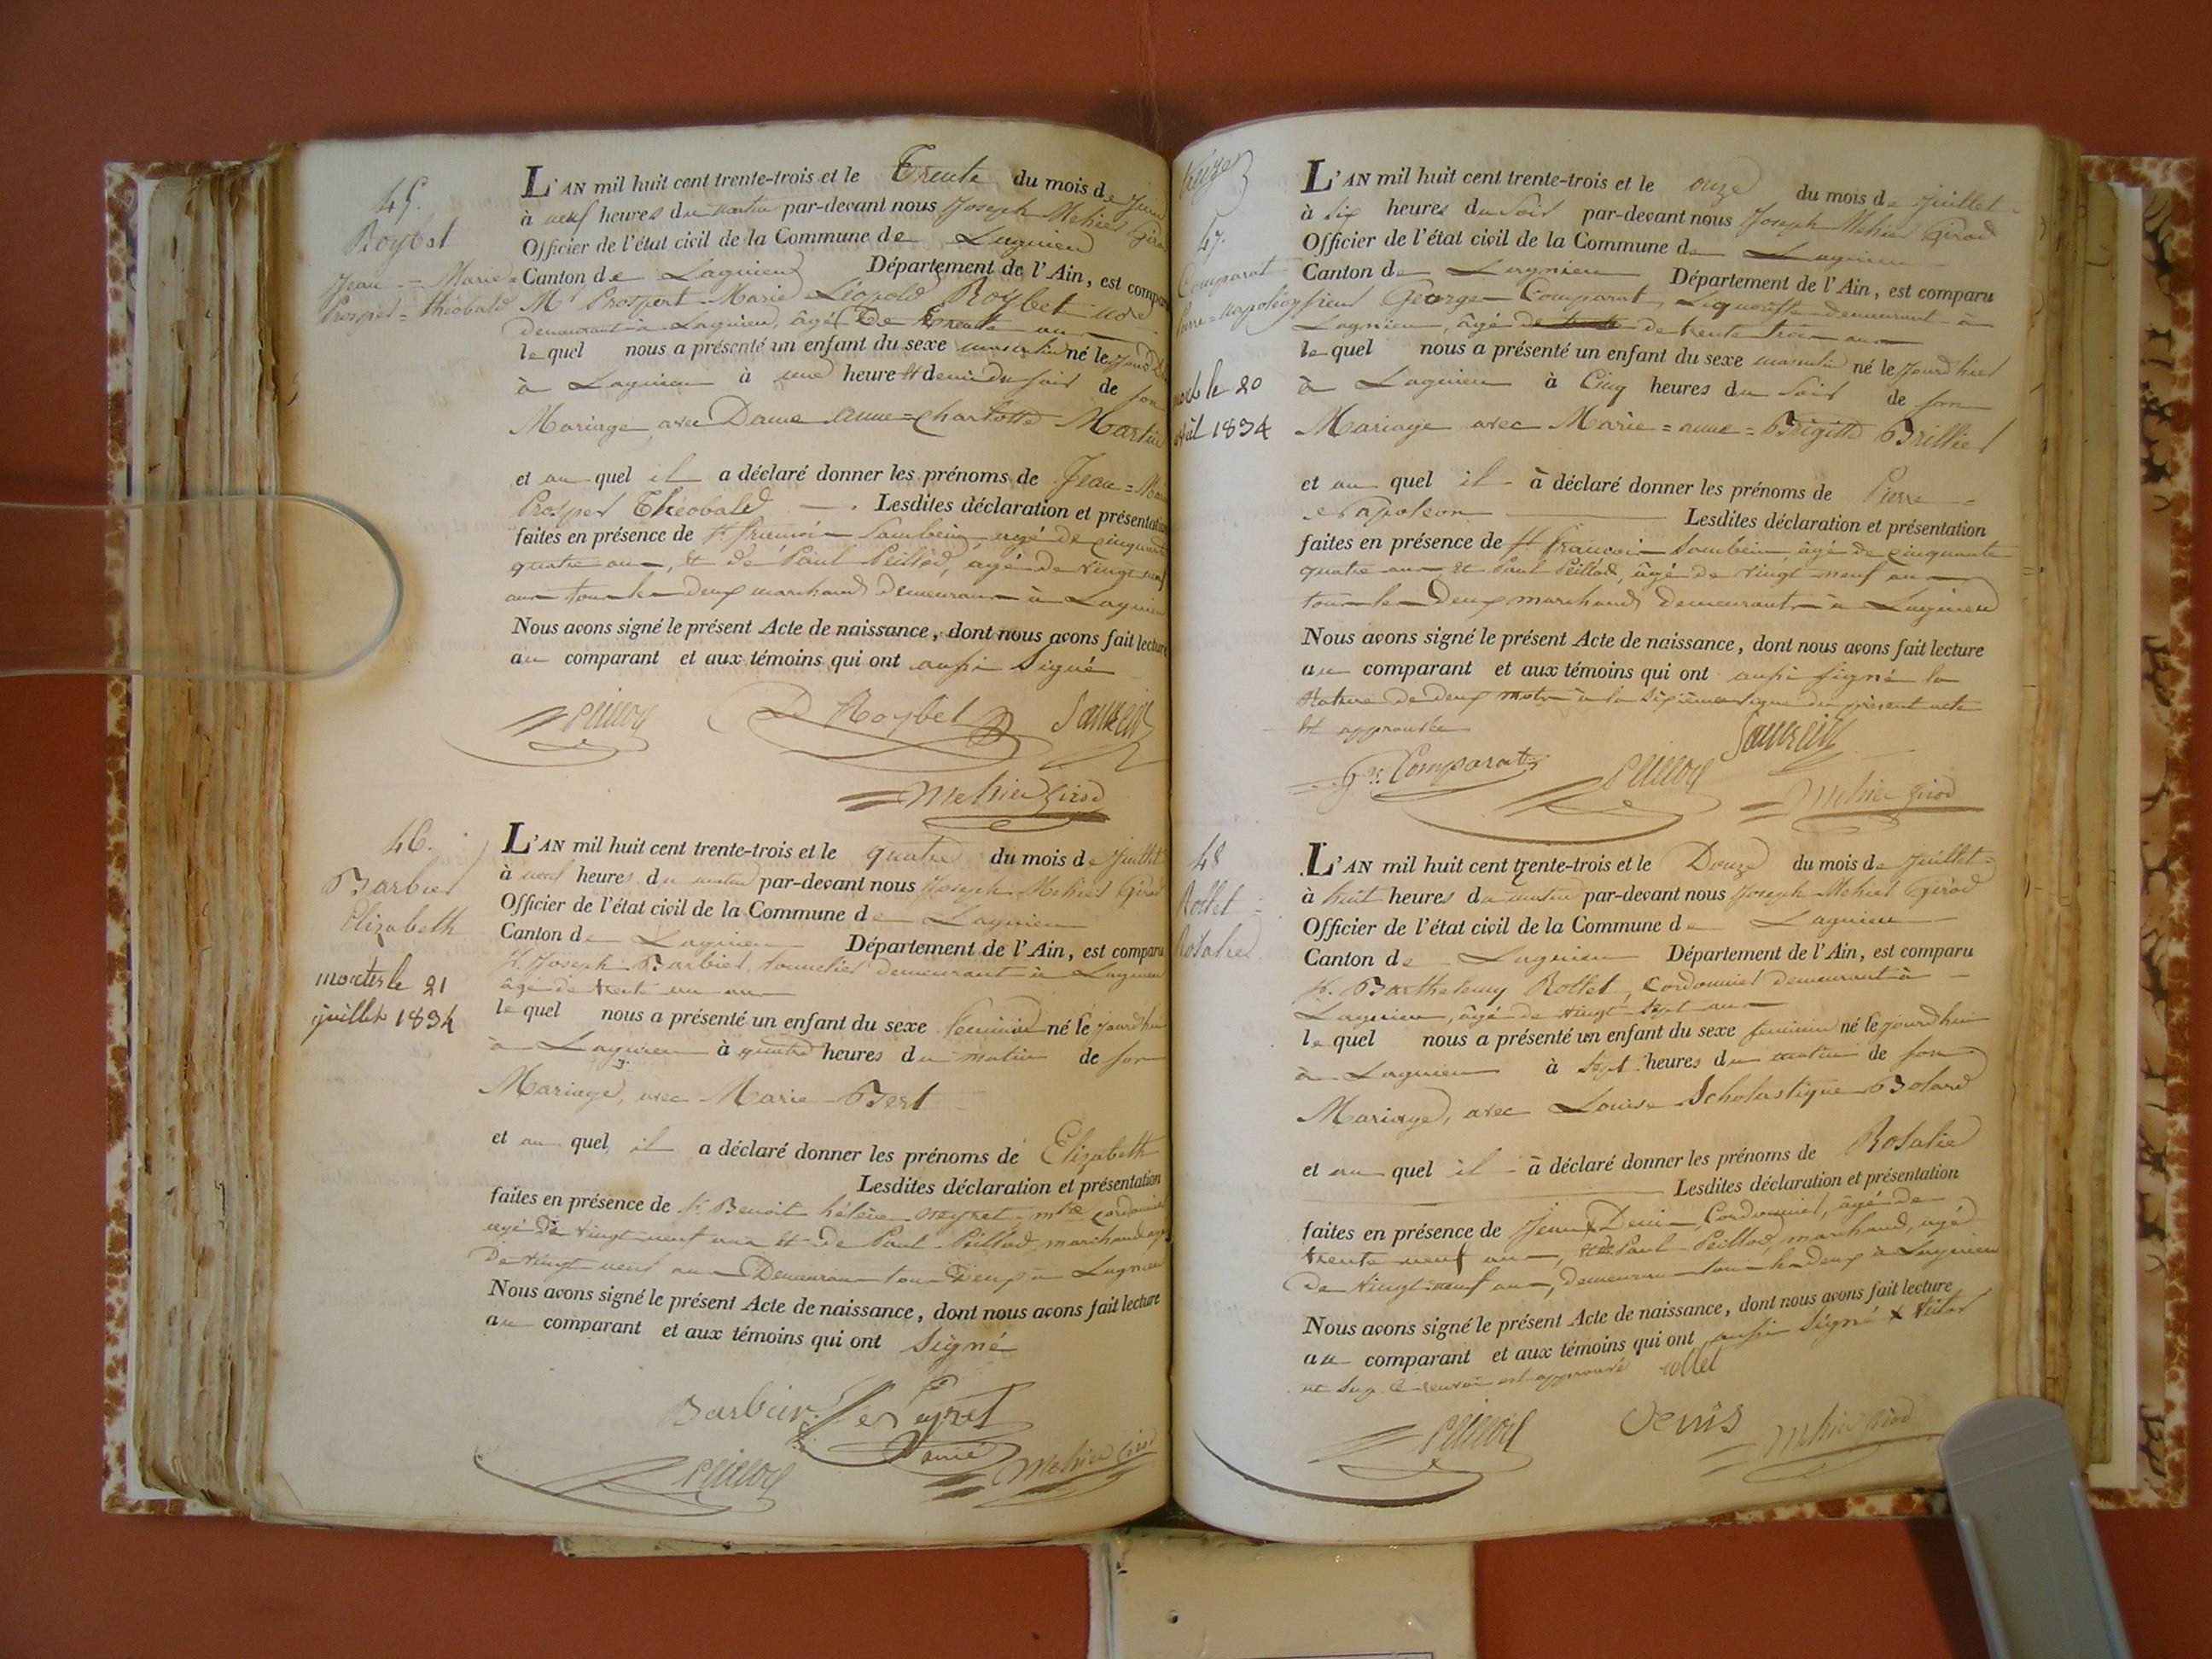 45.
Roybet
Jean = Marie =
Prosper = théobald
L'AN mil huit cent trente-trois et le Trente du mois de Juin
à neuf heures du matin par-devant nous Joseph Mehier Girod
Officier de l'état civil de la Commune de Lagnieu
Canton de Lagnieu Département de l'Ain, est comparu
Mr Prospert Marie Léopold Roybet
demeurant à Lagnieu, âgé De Trente ans
lequel nous a présenté un enfant du sexe masculin né le
à Lagnieu à une heure et demie du soir de son
Mariage avec Dame Anne = Charlotte Martin
et au quel il a déclaré donner les prénoms de Jean = Marie
Prosper Théobald — . Lesdites déclaration et présentation
faites en présence de Sr françois Saubein âgé de cinquante
quatre ans, et de Paul Peillod, âgé de vingt neuf
ans tous les deux marchands demeurans à Lagnieu
Nous avons signé le présent Acte de naissance, dont nous avons fait lecture
au comparant et aux témoins qui ont aussi Signé
Peillod D Roybet
Mehier Girod
46.
Barbier
Elizabeth
morte le 21
juillet 1834
L'AN mil huit cent trente-trois et le quatre du mois de Juillet
à neuf heures du matin par-devant nous Joseph Mehier Girod
Officier de l'état civil de la Commune de Lagnieu
Canton de Lagnieu Département de l'Ain, est comparu
Sr. Joseph Barbier, tonnelier demeurant à Lagnieu
âgé de trente un ans
lequel nous a présenté un enfant du sexe féminin né le jourd'hui
à Lagnieu à quatre heures du matin de son
Mariage, avec Marie Bert
et au quel il a déclaré donner les prénoms de Elizabeth
Lesdites déclaration et présentation
faites en présence de Sr. Benoit hélène Veyret, mtre cordonnier
âgé de vingt neuf ans et de Paul Peillod, marchand âgé
De vingt neuf ans Demeurans tous Deux à Lagnieu
Nous avons signé le présent Acte de naissance, dont nous avons fait lecture
au comparant et aux témoins qui ont Signé
Barbier Veyret
ainé
Peillod Mehier Girod
47.
Comparat
Pierre = Napoléon
20
1834
L'AN mil huit cent trente-trois et le onze du mois de Juillet
à six heures du Soir par-devant nous Joseph Mehier Girod
Officier de l'état civil de la Commune de Lagnieu
Canton de Lagnieu Département de l'Ain, est comparu
sieur George Comparat, Liquoriste demeurant à
Lagnieu, âgé de trente trois ans
lequel nous a présenté un enfant du sexe masculin né le jourd'hui
à Lagnieu à Cinq heures du Soir de son
Mariage avec Marie = anne = Brigitte Brillier
et au quel il à déclaré donner les prénoms de Pierre =
Napoléon Lesdites déclaration et présentation
faites en présence de Sr françois Saubein âgé de cinquante
quatre ans et Paul Peillod, âgé de vingt neuf ans
tous les Deux marchands demeurants à Lagnieu
Nous avons signé le présent Acte de naissance, dont nous avons fait lecture
au comparant et aux témoins qui ont aussi signé la
rature de deux mots à la sixième ligne du présent acte
est approuvée
Comparat Peillod Mehier Girod
48
Rollet =
Rosalie
L'AN mil huit cent trente-trois et le Douze du mois de Juillet
à huit heures du matin par-devant nous Joseph Mehier Girod
Officier de l'état civil de la Commune de Lagnieu
Canton de Lagnieu Département de l'Ain, est comparu
Sr. Barthelemy Rollet, Cordonnier demeurant à
Lagnieu, âgé de vingt sept ans
lequel nous a présenté un enfant du sexe féminin né le jourd'hui
à Lagnieu à sept heures du matin de son
Mariage, avec Louise Scholastique Bolard
et au quel il à déclaré donner les prénoms de Rosalie
Lesdites déclaration et présentation
faites en présence de Jean Denis, Cordonnier, âgé de
trente neuf ans, et de Paul Peillod, marchand, âgé
De vingt neuf ans, demeurans tous les deux à Lagnieu
Nous avons signé le présent Acte de naissance, dont nous avons fait lecture
au comparant et aux témoins qui ont aussi Signé
le renvoi est approuvé rollet
Peillod Denis Mehier Girod